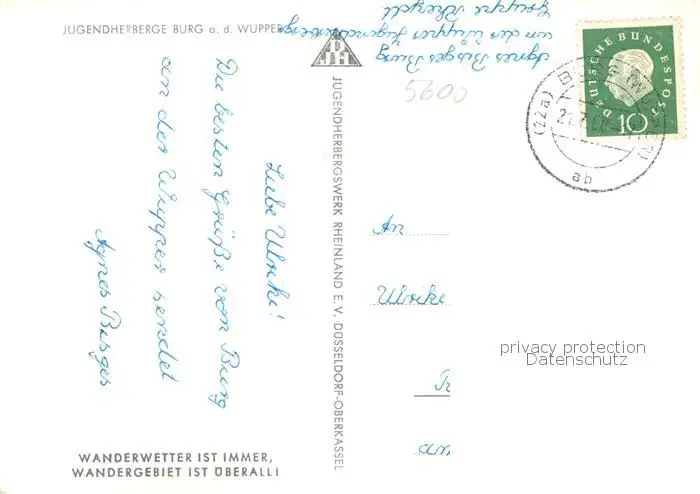 JUGENDHERBERGE BURG a. d. WUPPER
Liebe Ulrike!
Die besten Grüße von Burg
an der Wupper sendet
Agnes Burges
WANDERWETTER IST IMMER,
WANDERGEBIET IST ÜBERALL!
JUGENDHERBERGSWERK RHEINLAND E. V. DÜSSELDORF-OBERKASSEL
DJH
Agnes Burges Burg
an der Wupper Jugendherberge
Gruppe
5600
DEUTSCHE BUNDESPOST
10
(22a) BURG (WUPPER)
ab
An
Ulrike
privacy protection
Datenschutz